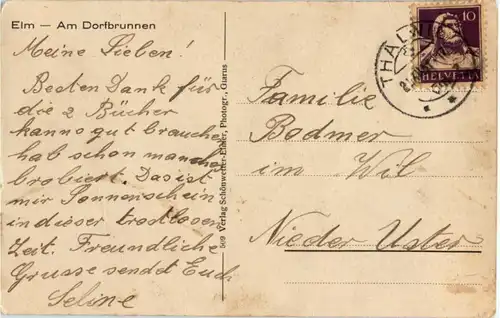 Elm — Am Dorfbrunnen
Meine Lieben!
Besten Dank für
die 2 Bücher
kann so gut brauchen
hab schon manches
brobiert. Das ist
mir Sonnenschein
in dieser trostlosen
Zeit. Freundliche
Grüsse sendet Euch
Seline
569 Verlag Schönwetter-Elmer, Photogr., Glarus
THALWIL
10
HELVETIA
Familie
Bodmer
im Wil
Nieder Uster